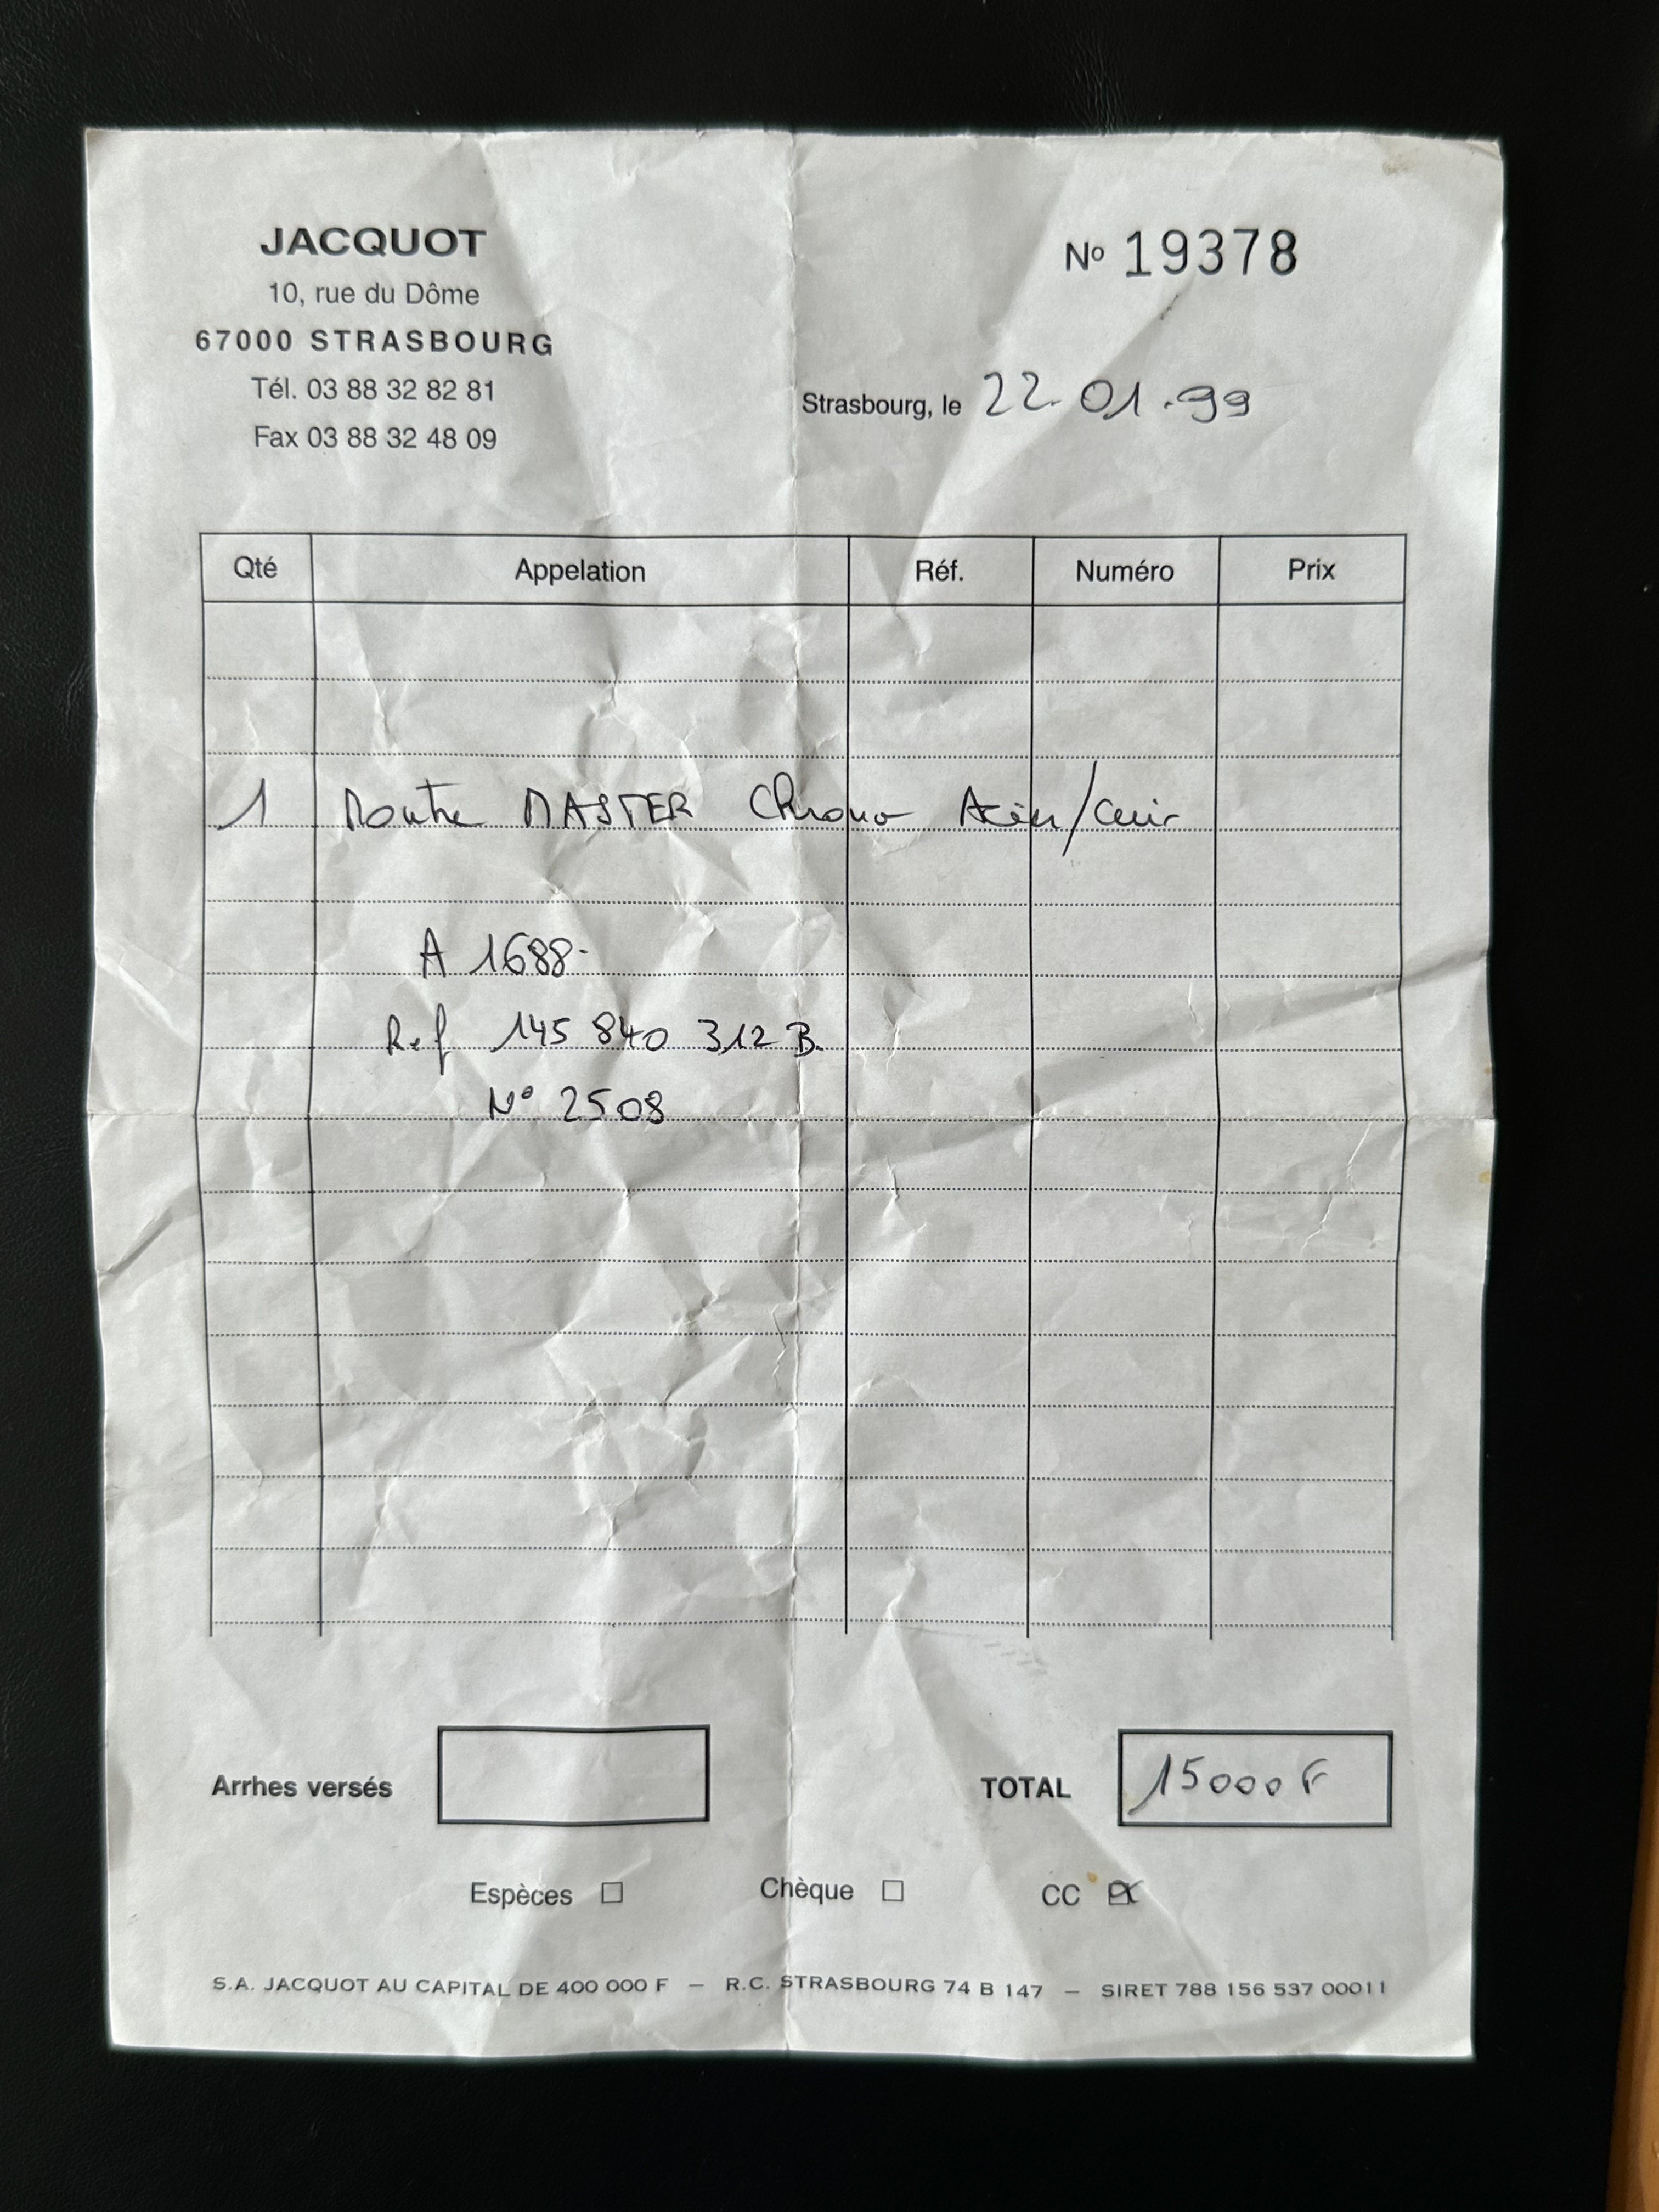 JACQUOT
10, rue du Dôme
67000 STRASBOURG
Tél. 03 88 32 82 81
Fax 03 88 32 48 09
Nº 19378
Strasbourg, le 22.01.99
Qté Appelation Réf. Numéro Prix
1 Montre MASTER Chrono Acier/Cuir
A 1688-
Ref 145 840 312 B.
N° 2508
Arrhes versés
TOTAL 15000 F
Espèces ☐ Chèque ☐ CC ☒
S.A. JACQUOT AU CAPITAL DE 400 000 F — R.C. STRASBOURG 74 B 147 — SIRET 788 156 537 00011